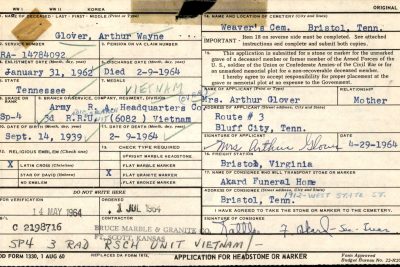 WW I
KOREA
ORIGINAL
1. NAME OF DECEASED - LAST - FIRST - MIDDLE (Print or Type)
Glover, Arthur Wayne
14. NAME AND LOCATION OF CEMETERY (City and State)
Weaver's Cem. Bristol, Tenn.
2. SERVICE NUMBER
RA- 14784092
3. PENSION OR VA CLAIM NUMBER
IMPORTANT: Item 18 on reverse side must be completed. See attached
instructions and complete and submit both copies.
4. ENLISTMENT DATE (Month-Day-Year)
January 31, 1962
5. DISCHARGE DATE (Month-Day-Year)
Died 2-9-1964
This application is submitted for a stone or marker for the unmarked
grave of a deceased member or former member of the Armed Forces of the
U.S., soldier of the Union or Confederate Armies of the Civil War or for
an unmarked memorial plot for a non-recoverable deceased member.
I hereby agree to accept responsibility for proper placement at the
grave or memorial plot at no expense to the Government.
6. STATE
Tennessee
VIETNAM
8. GRADE
9. BRANCH OF SERVICE, COMPANY, REGIMENT, DIVISION
Sp-4
Army R.A. Headquarters Co.
3d R.R.U. (6082) Vietnam
Mrs. Arthur Glover
RELATIONSHIP
Mother
Route # 3
Bluff City, Tenn.
10. DATE OF BIRTH (Month-Day-Year)
Sept. 14, 1939
11. DATE OF DEATH (Month-Day-Year)
2-9-1964
SIGNATURE OF APPLICANT
DATE
Mrs Arthur Glover
4-29-1964
12. RELIGIOUS EMBLEM (Check one)
13. CHECK TYPE REQUIRED
UPRIGHT MARBLE HEADSTONE
X LATIN CROSS (Christian)
X FLAT MARBLE MARKER
STAR OF DAVID (Hebrew)
FLAT GRANITE MARKER
NO EMBLEM
FLAT BRONZE MARKER
FREIGHT STATION
Bristol, Virginia
NAME OF CONSIGNEE WHO WILL TRANSPORT STONE OR MARKER
Akard Funeral Home
1912-WEST STATE ST.
Bristol, Tenn.
DO NOT WRITE HERE
14 MAY 1964
JUL 1964
I HAVE AGREED TO TAKE THE STONE OR MARKER TO THE CEMETERY.
C 2198716
BRUCE MARBLE & GRANITE CO.
FT. SCOTT, KANSAS
SP4 3 RAD RSCH UNIT VIETNAM
FORM 1330, 1 AUG 60
REPLACES DA FORM
APPLICATION FOR HEADSTONE OR MARKER
Form Approved
Budget Bureau No.